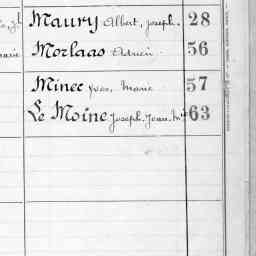 Maury Albert, Joseph. 28
Morlaas Adrien 56
Minec Yves, Marie 57
Le Moine Joseph, Jean, M 63